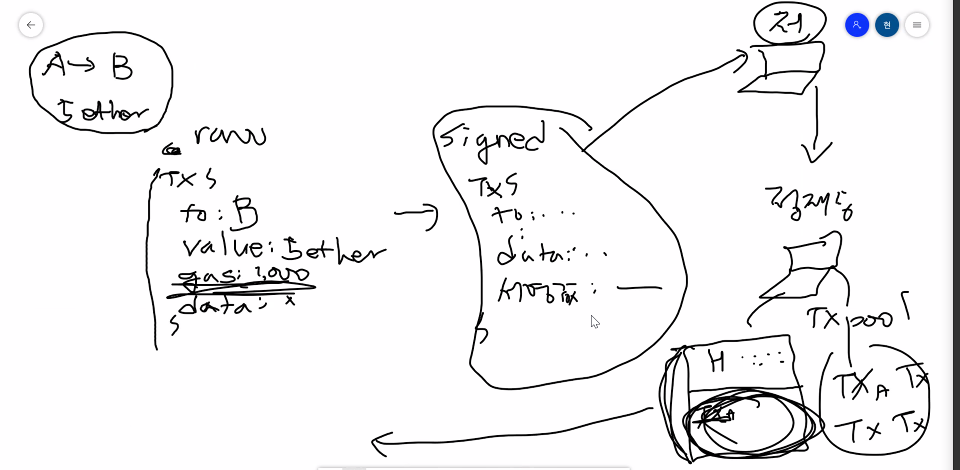 A → B
5 ether
raw
TX {
to : B
value : 5 ether
gas : 1,000
data : x
}
signed
TX {
to : ...
data : ...
서명값 : —
}
현
TX pool
TX A TX
TX TX
H ......
TX A